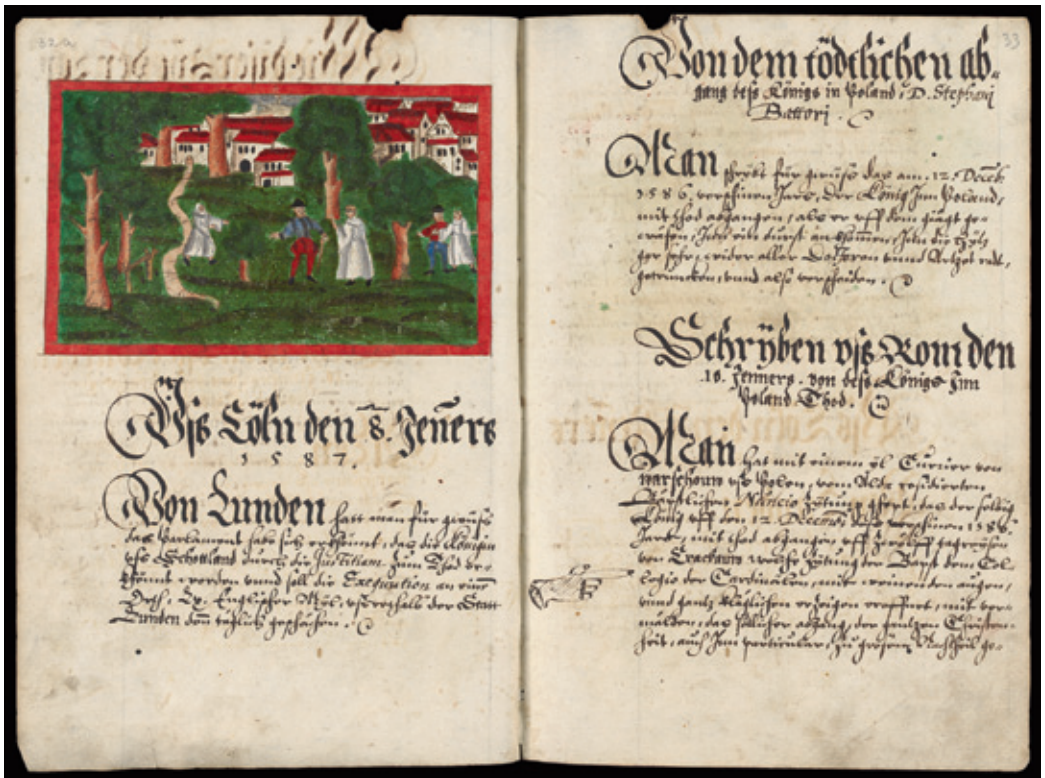 32a
Vss Cöln den 8. Jeners
1587.
Von Lunden hatt man für gwüss
das Parlament habe sich erkhennt, das die Königin
vss Schottland durch die Justitiam zum Thod
worden vnnd soll die Exequution an einem
Orth, Englischer Myl, vsserthalb der Statt
Lunden
33
Von dem tödtlichen ab-
gang dess Königs in Poland, D. Stephani
Battori.
Man schrybt für gwüss das am 12. Decemb.
1586. verschinen Jars, der König Inn Poland,
mit thod abgangen, als er vff dem gjägt ge-
Inn ein durst an khommen, Inn die
gar sehr, wider aller Doctoren vnnd Artzet radt,
getruncken, vnnd also verscheiden.
Schryben vss Rom den
10. Jenners. von dess Königs Inn
Poland Thod.
Man hat mit einem yl Curier von
Warschouw vss Polen, vom Alda residierten
Bäpstlichen Nuncio zytung ghept, das der selbig
König vff den 12. Decemb. diss verschinen 1586
Jars, mit thod abgangen vff
von Crackauw welche zytung der Bapst dem Col-
legio der Cardinälen, mit weinenden augen,
vnnd gantz kläglichen eroffnet, mit ver-
mälden, das söllicher abgang, der gantzen Christen-
heit, auch Inn particular, zu grossem Nachtheil ge-